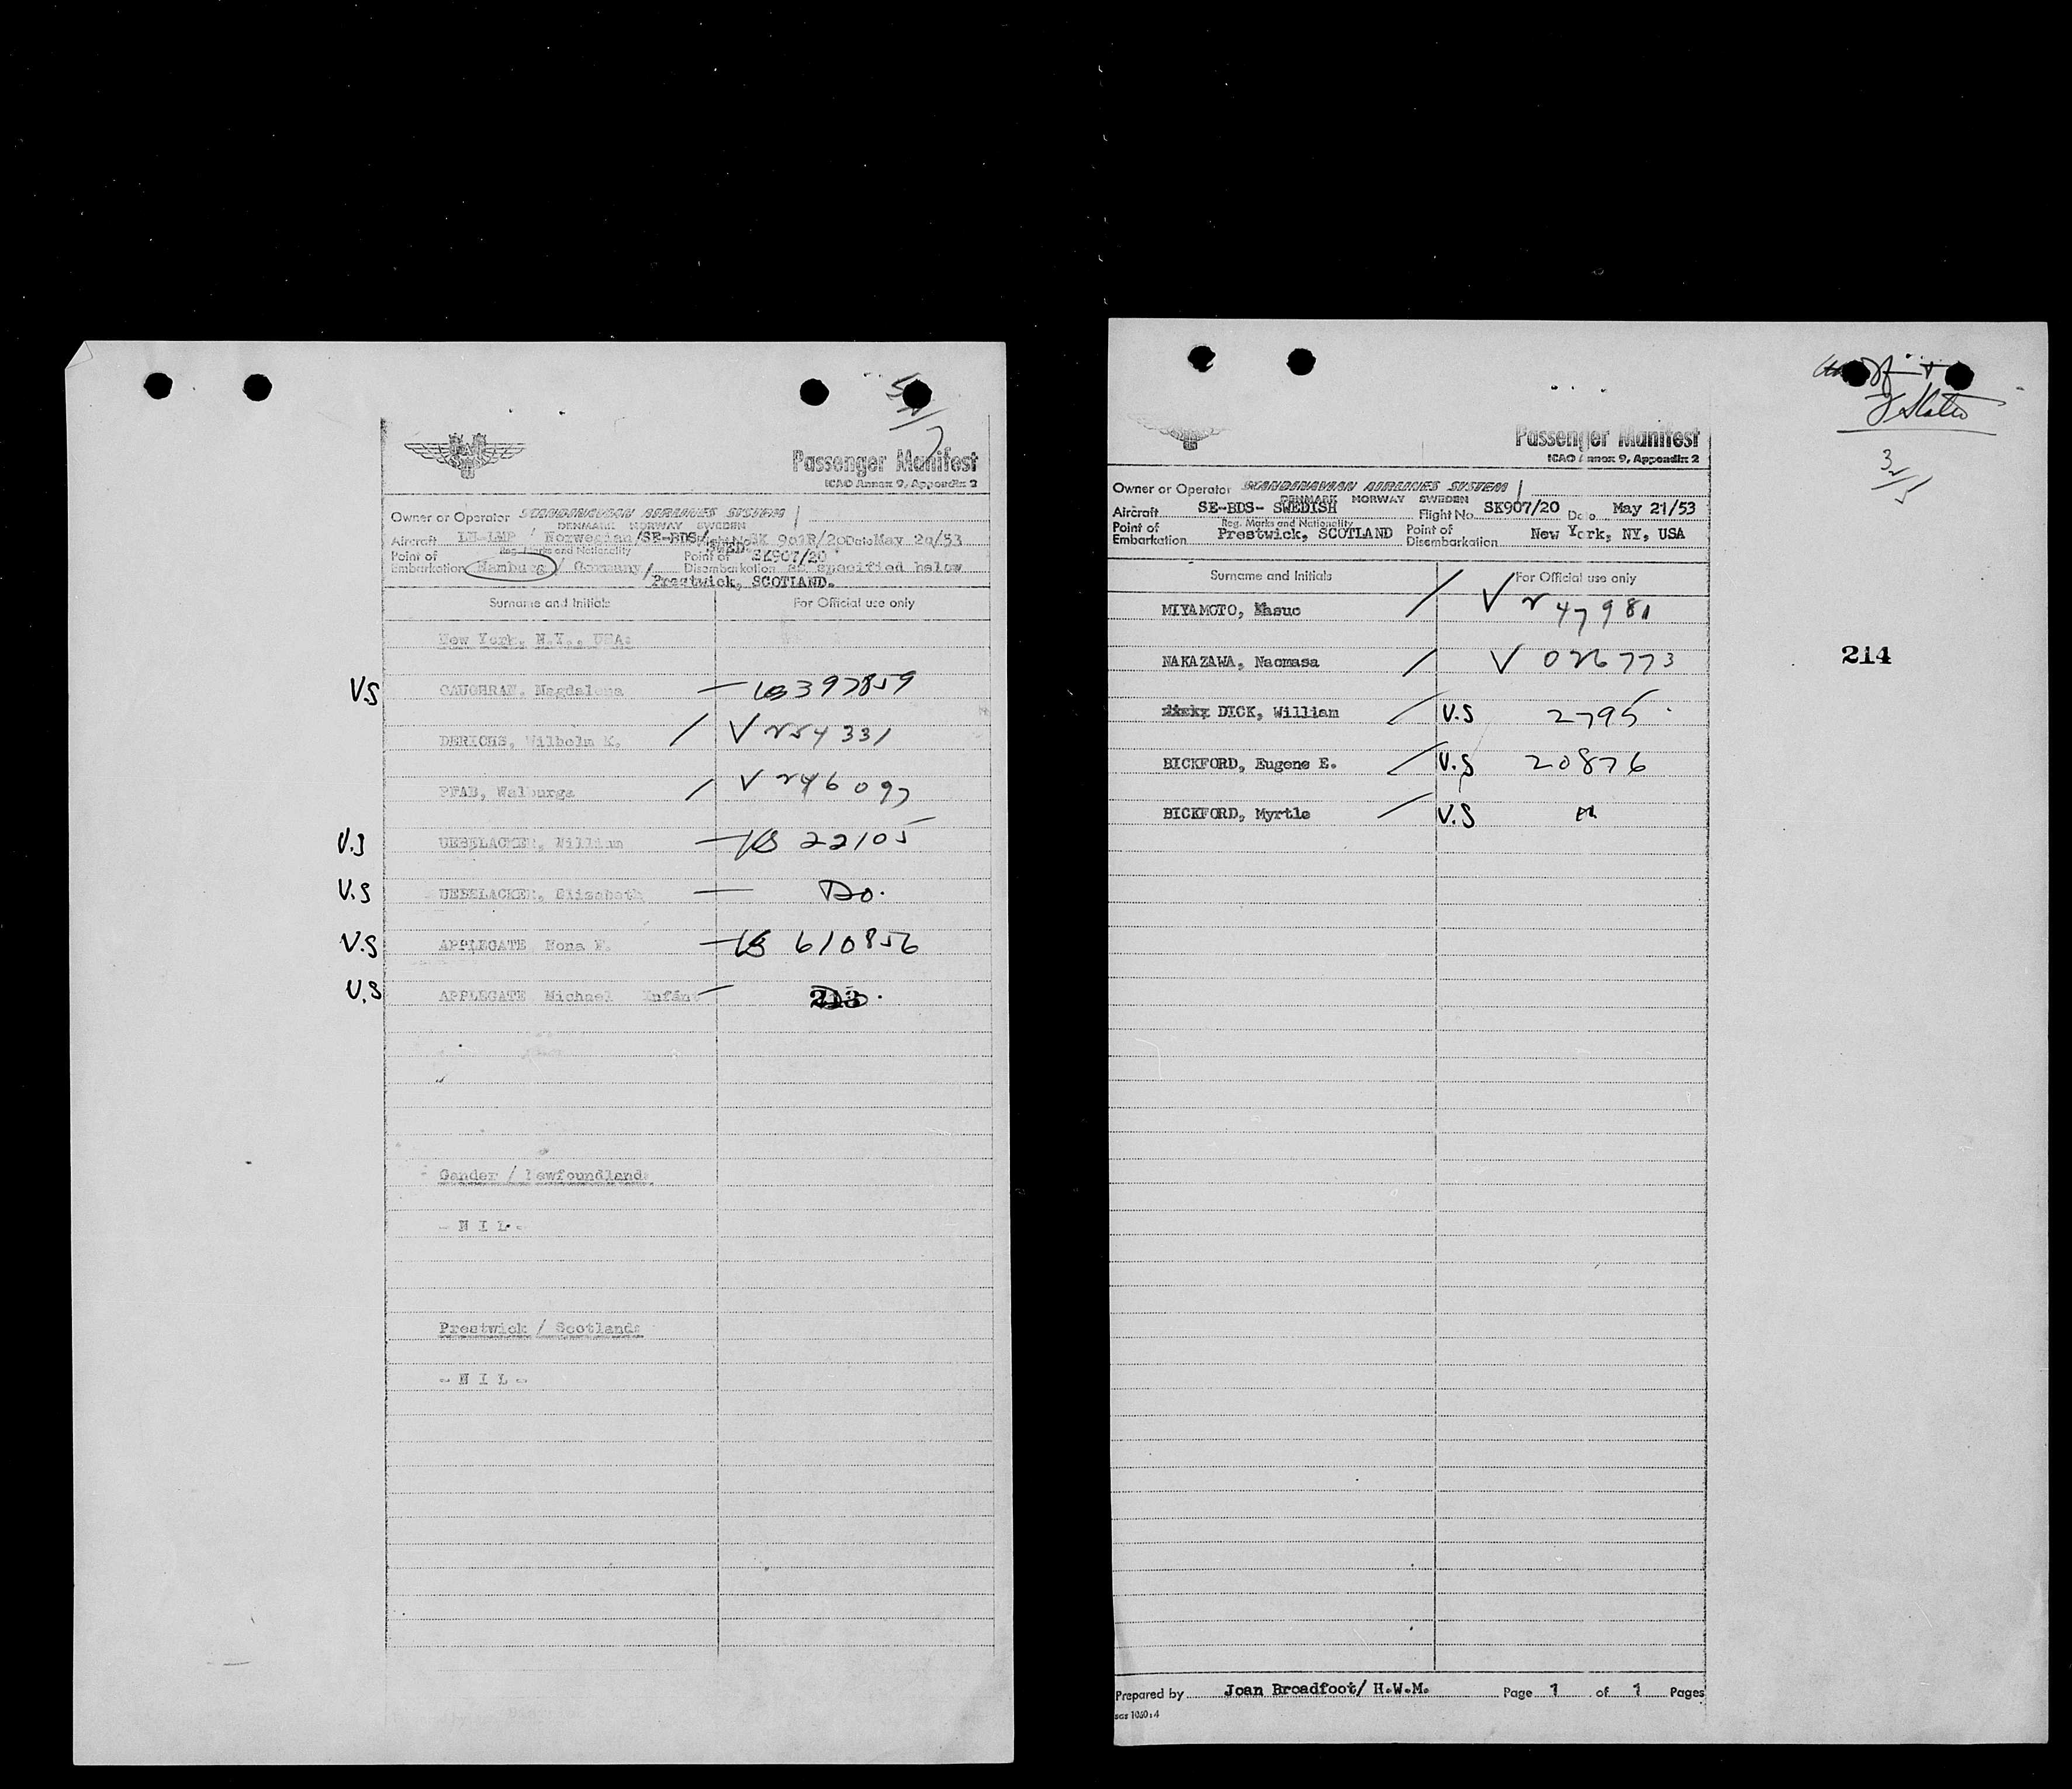 Passenger Manifest
ICAO Annex 9, Appendix 2
Owner or Operator SCANDINAVIAN AIRLINES SYSTEM
DENMARK NORWAY SWEDEN
Aircraft LN-LMP / Norwegian/SE-BDS/SWED. SK 901R/20 Date May 20/53
Reg. Marks and Nationality
SK907/20
Point of Embarkation Hamburg / Germany/ Point of Disembarkation as specified below
Prestwick, SCOTLAND.
Surname and Initials For Official use only
New York, N.Y., USA:
V.S CAUGHRAN, Magdalena — 397859
DERICHS, Wilhelm K. / V 254331
PFAB, Walburga / V 246097
V.S UEBELACKER, William — 22105
V.S UEBELACKER, Elizabeth — Do.
V.S APPLEGATE Nona F. — 610856
V.S APPLEGATE Michael Infant — Do.
213
Gander / Newfoundland:
- N I L -
Prestwick / Scotland:
- N I L -
Slater
3/5
Passenger Manifest
ICAO Annex 9, Appendix 2
Owner or Operator SCANDINAVIAN AIRLINES SYSTEM
DENMARK NORWAY SWEDEN
Aircraft SE-BDS- SWEDISH Flight No. SK907/20 Date May 21/53
Reg. Marks and Nationality
Point of Embarkation Prestwick, SCOTLAND Point of Disembarkation New York, NY, USA
Surname and Initials For Official use only
MIYAMOTO, Masuo / V 247981
NAKAZAWA, Naomasa / V 026773
214
DICK, William / V.S 2795
BICKFORD, Eugene E. / V.S 20876
BICKFORD, Myrtle / V.S "
Prepared by Joan Broadfoot/ H.W.M. Page 1 of 1 Pages
SGS 1050:4